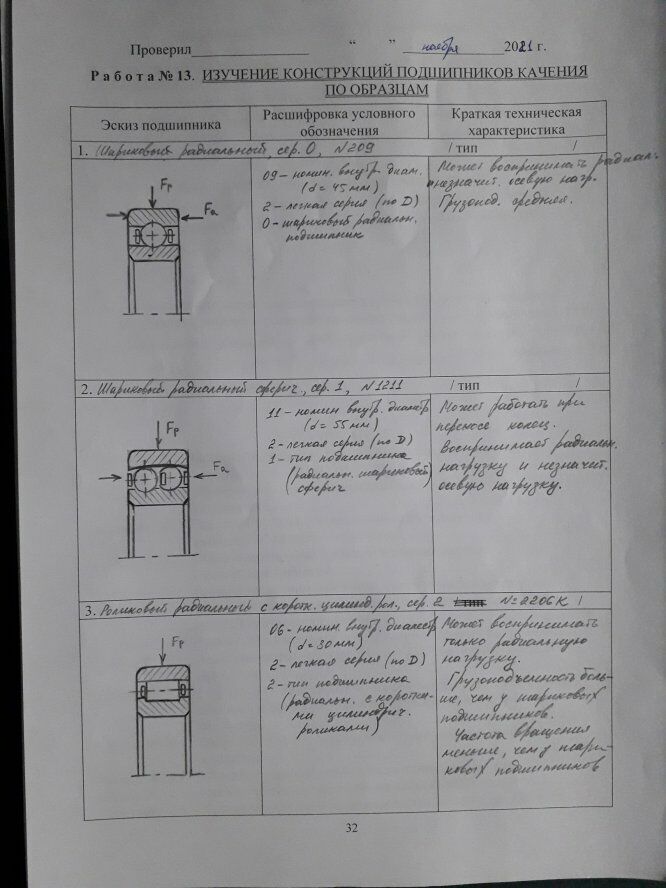 Проверил________________ “ ” ноября 2021 г.
Работа № 13. ИЗУЧЕНИЕ КОНСТРУКЦИЙ ПОДШИПНИКОВ КАЧЕНИЯ
ПО ОБРАЗЦАМ
Эскиз подшипника
Расшифровка условного
обозначения
Краткая техническая
характеристика
1. Шариковый радиальный, сер. 0, N209 / тип /
Fр
Fа
09 – номин. внутр. диам.
(d = 45 мм)
2 – легкая серия (по D)
0 – шариковый радиальн.
подшипник
Может воспринимать радиал.
незначит. осевую нагр.
Грузопод. средняя.
2. Шариковый радиальный сферич., сер. 1, N1211 / тип /
Fр
Fа
11 – номин внутр. диаметр
(d = 55 мм)
2 – легкая серия (по D)
1 – тип подшипника
(радиальн. шариковый
сферич)
Может работать при
перекосе колец.
Воспринимает радиальн.
нагрузку и незначит.
осевую нагрузку.
3. Роликовый радиальный с коротк. цилинд. рол., сер. 2 N=2206К /
Fр
06 – номин. внутр. диаметр
(d = 30 мм)
2 – легкая серия (по D)
2 – тип подшипника
(радиальн. с коротки-
ми цилиндрич.
роликами)
Может воспринимать
только радиальную
нагрузку.
Грузоподъемность боль-
ше, чем у шариковых
подшипников.
Частота вращения
меньше, чем у шари-
ковых подшипников
32